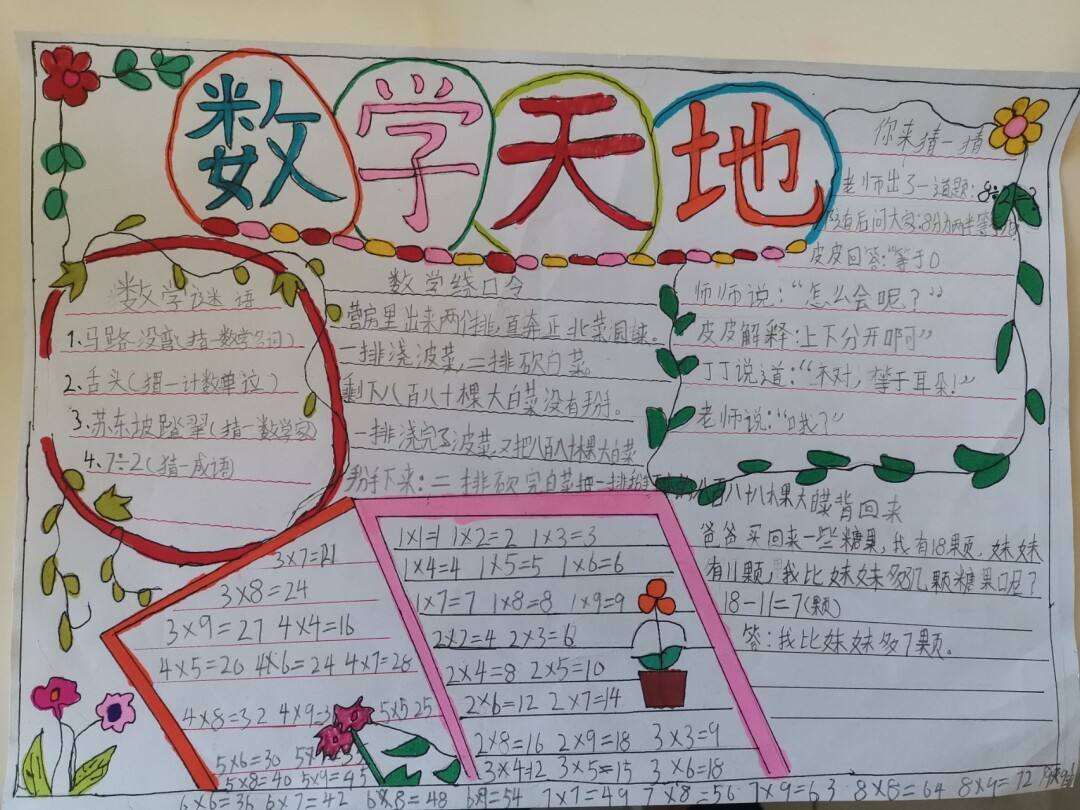 数学天地
数学谜语
1、马路没弯(猜一数学名词)
2、舌头(猜一计数单位)
3、苏东坡踏翠(猜一数学家)
4、7÷2(猜一成语)
数学绕口令
营房里出来两个排,直奔正北菜园来。
一排浇波菜,二排砍白菜。
剩下八百八十棵大白菜没有掰。
一排浇完了波菜,又把八百八十八棵大白菜
掰下来;二排砍完白菜把一排掰
八百八十八棵大白菜背回来
你来猜一猜
老师出了一道题:8÷2=2
后问大家:8分为两半等
皮皮回答:“等于0
师师说:“怎么会呢?”
皮皮解释:上下分开啊”
丁丁说道:“不对,等于耳朵!”
老师说:“哦?”
爸爸买回来一些糖果,我有18颗,妹妹
有11颗,我比妹妹多几颗糖果呢?
18-11=7(颗)
答:我比妹妹多7颗。
1×1=1 1×2=2 1×3=3
1×4=4 1×5=5 1×6=6
1×7=7 1×8=8 1×9=9
2×2=4 2×3=6
2×4=8 2×5=10
2×6=12 2×7=14
2×8=16 2×9=18 3×3=9
3×4=12 3×5=15 3×6=18
3×7=21
3×8=24
3×9=27 4×4=16
4×5=20 4×6=24 4×7=28
4×8=32 4×9=3 5×5 25
5×6=30 5×
5×8=40 5×9=45
6×6=36 6×7=42 6×8=48 6×9=54 7×7=49 7×8=56 7×9=63 8×8=64 8×9=72